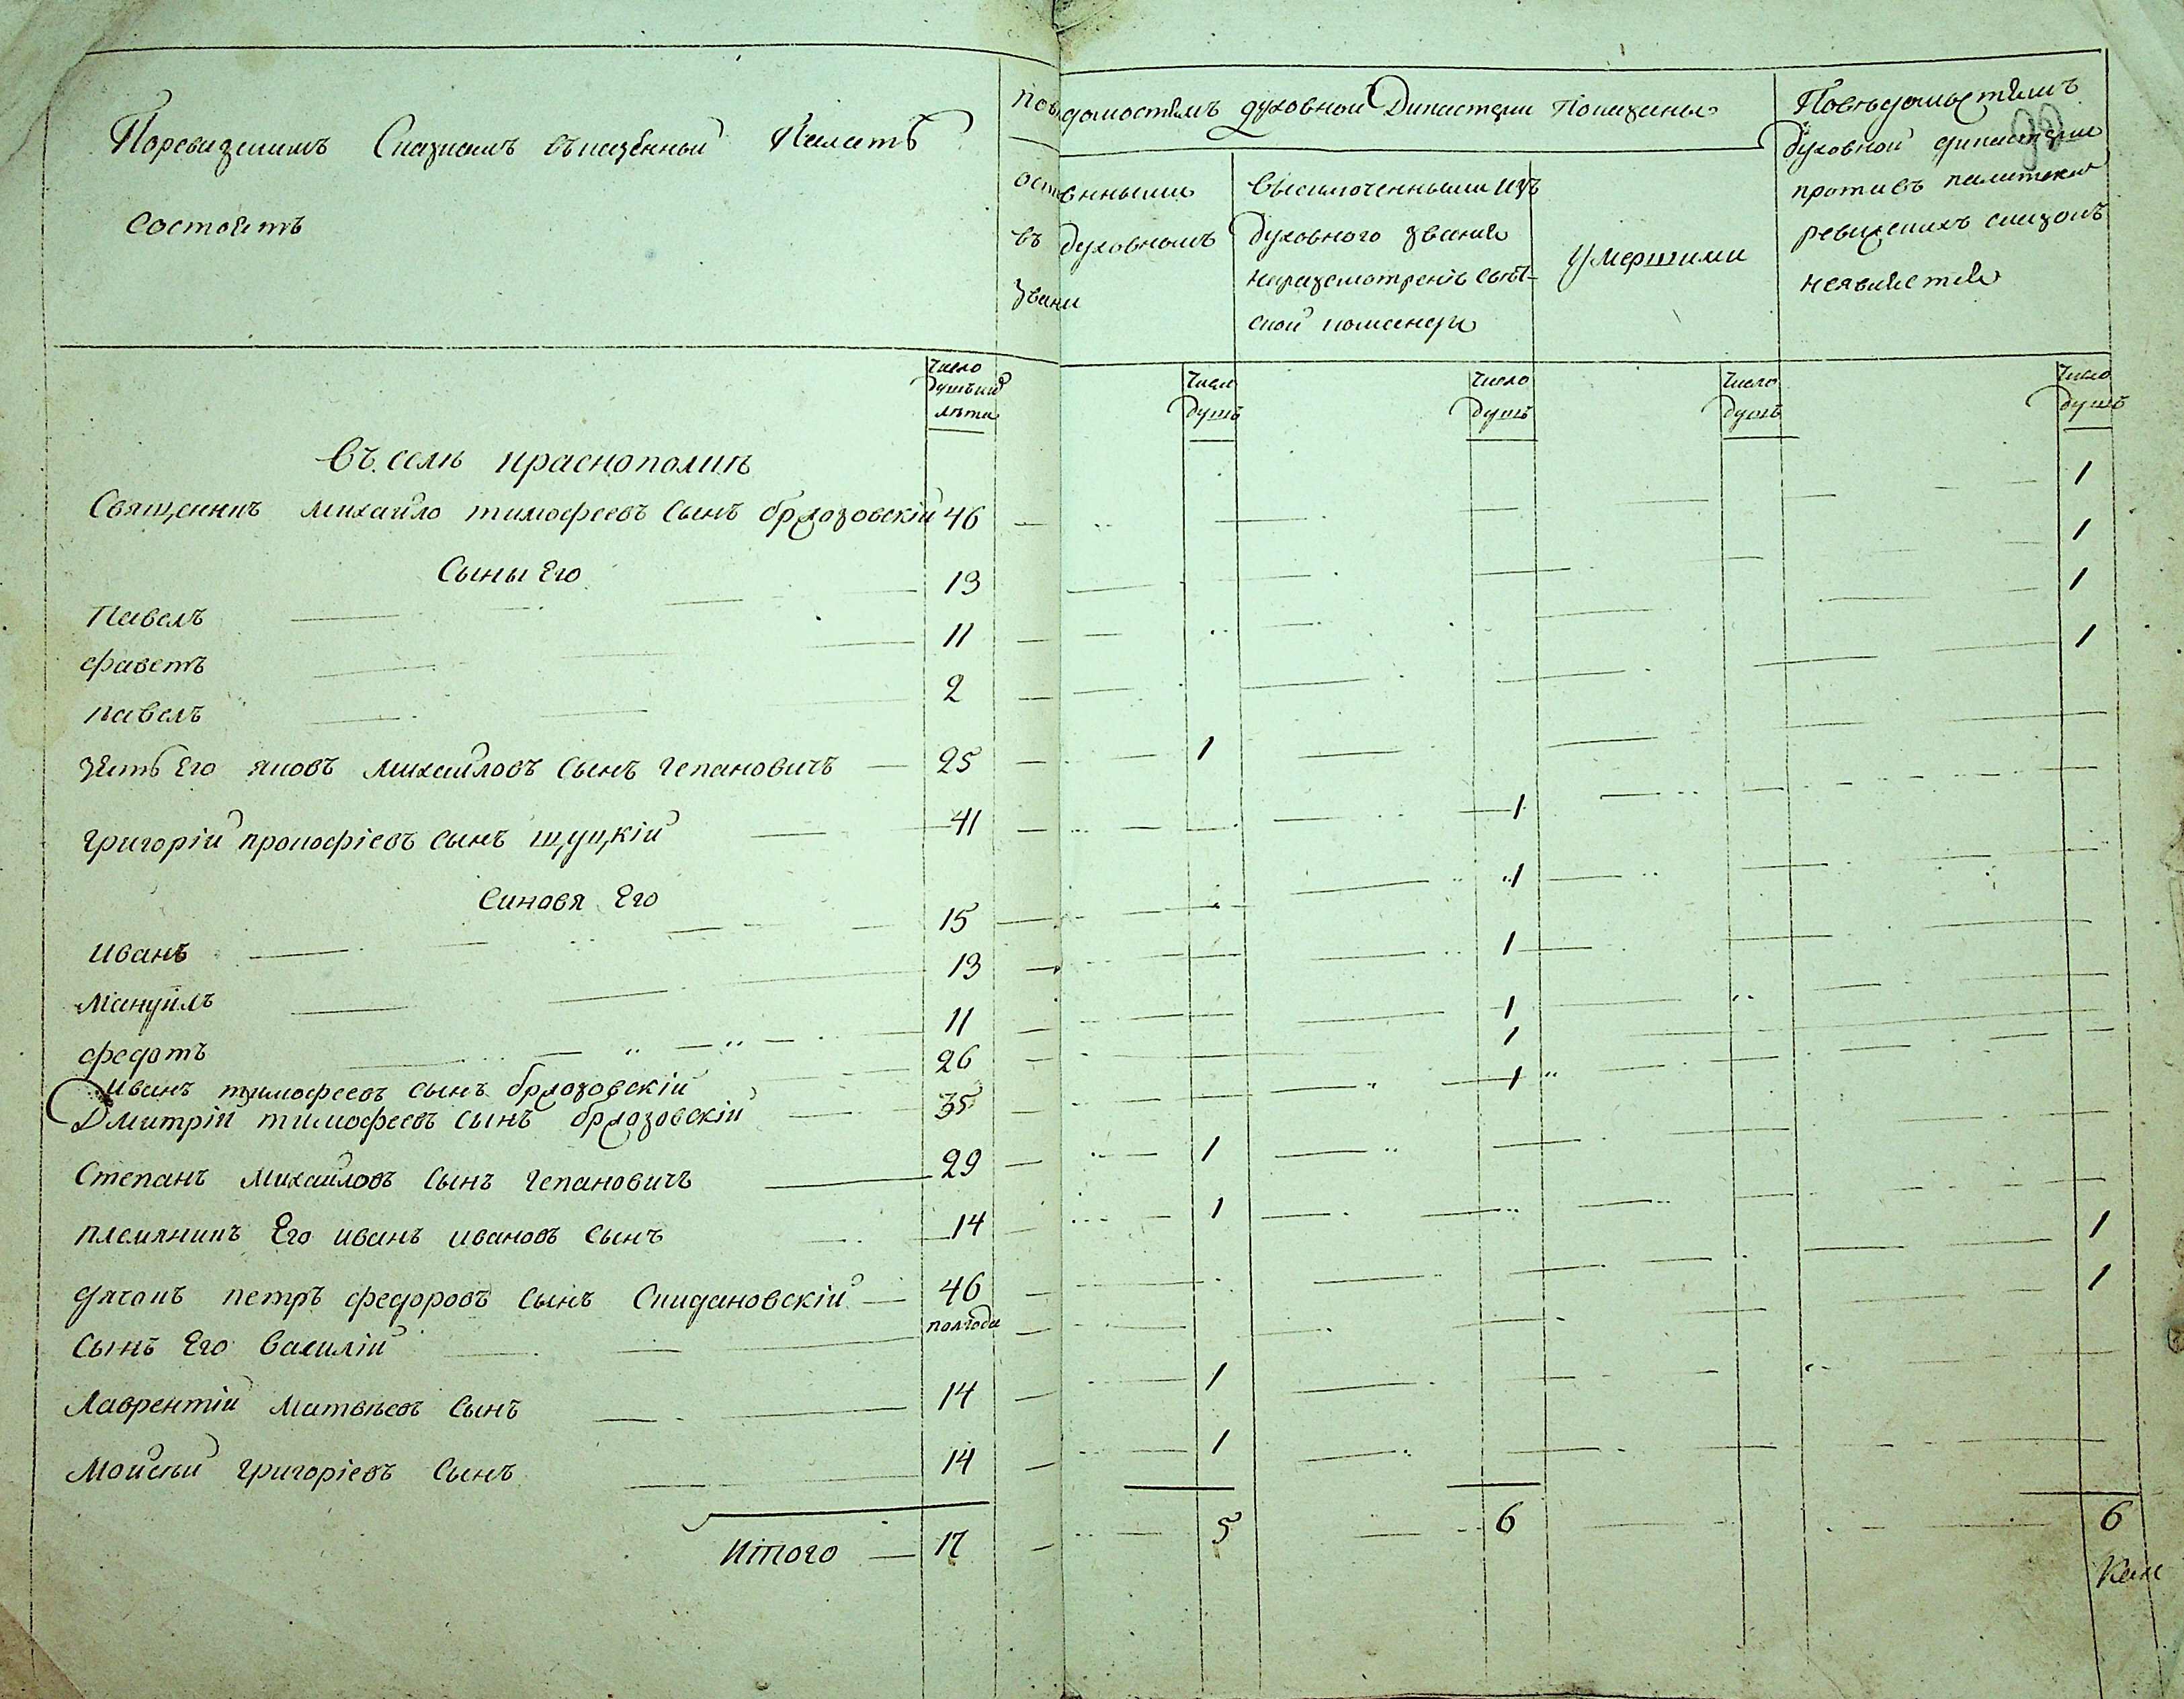 Поревизскимъ Сказкамъ въказенной Палатѣ
состоитъ
Поведомостямъ духовной Дикастерии Показаны
оставенными
въ духовномъ
звани
высключенными изъ
духовного звания
наразсмотрение свѣт-
ской команды
умершими
Поведомостямъ
духовной дикастерии
противъ палатски
ревизскихъ сказокъ
неявляется
Число
душъ
лѣта
Число
душъ
Число
душъ
Число
душъ
Число
душъ
въ селѣ краснополкѣ
Священникъ михайло тимофеевъ сынъ брозовскій 46 1
Сыны Его
Павелъ 13 1
11 1
павелъ 2 1
зять Его яковъ михайловъ сынъ чепановичъ 25 1
григорій прокофіевъ сынъ щуцкій 41 1
Синовя Его
иванъ 15 1
мануйлъ 13 1
федотъ 11 1
иванъ тимофеевъ сынъ брозовскій 26 1
Дмитрій тимофеевъ сынъ брозовскій 35 1
Степанъ михайловъ сынъ чепановичъ 29 1
племяникъ Его иванъ ивановъ сынъ 14 1
дячокъ петръ федоровъ сынъ Скидановскій 46 1
сынъ Его василій полгода 1
Лаврентій матвѣевъ сынъ 14 1
Мойсѣй григоріевъ сынъ 14 1
Итого 17 5 6 6